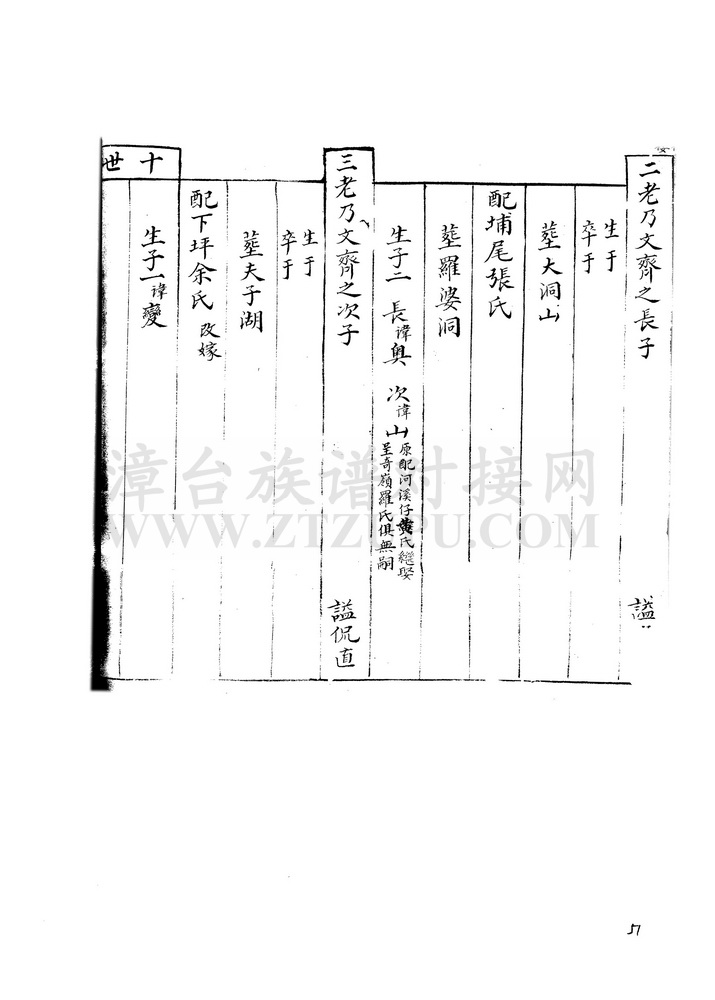 二老乃文齊之長子 謚
生于
卒于
塟大洞山
配埔尾張氏
塟羅婆洞
生子二 長諱奥 次諱山 原配河溪仔黄氏繼娶
呈奇嶺羅氏俱無嗣
三老乃文齊之次子 謚侃直
生于
卒于
塟夫子湖
配下坪余氏 改嫁
生子一諱變
十世
漳台族谱对接网
WWW.ZTZUPU.COM
57